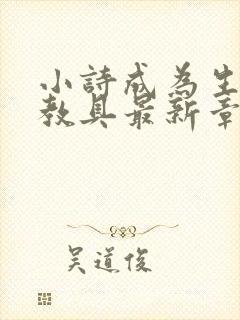 小詩成為生
教具最新章
吳道俊